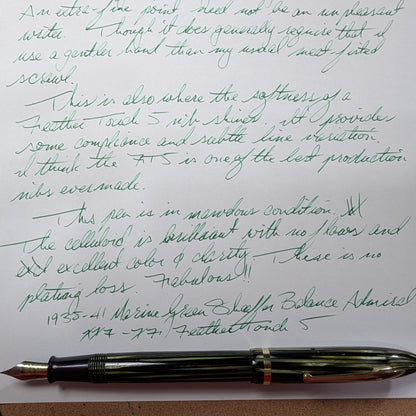 An extra-fine point need not be an unpleasant
writer. Though it does generally require that I
use a gentler hand than my usual meat-fisted
scrawl.
This is also where the softness of a
Feather Touch 5 nib shines. It provides
some compliance and subtle line variation.
I think the FT5 is one of the best production
nibs ever made.
This pen is in marvelous condition.
The celluloid is brilliant with no flaws and
excellent color & clarity. There is no
plating loss. Fabulous!!
1935-41 Marine Green Sheaffer Balance Admiral
Feather Touch 5